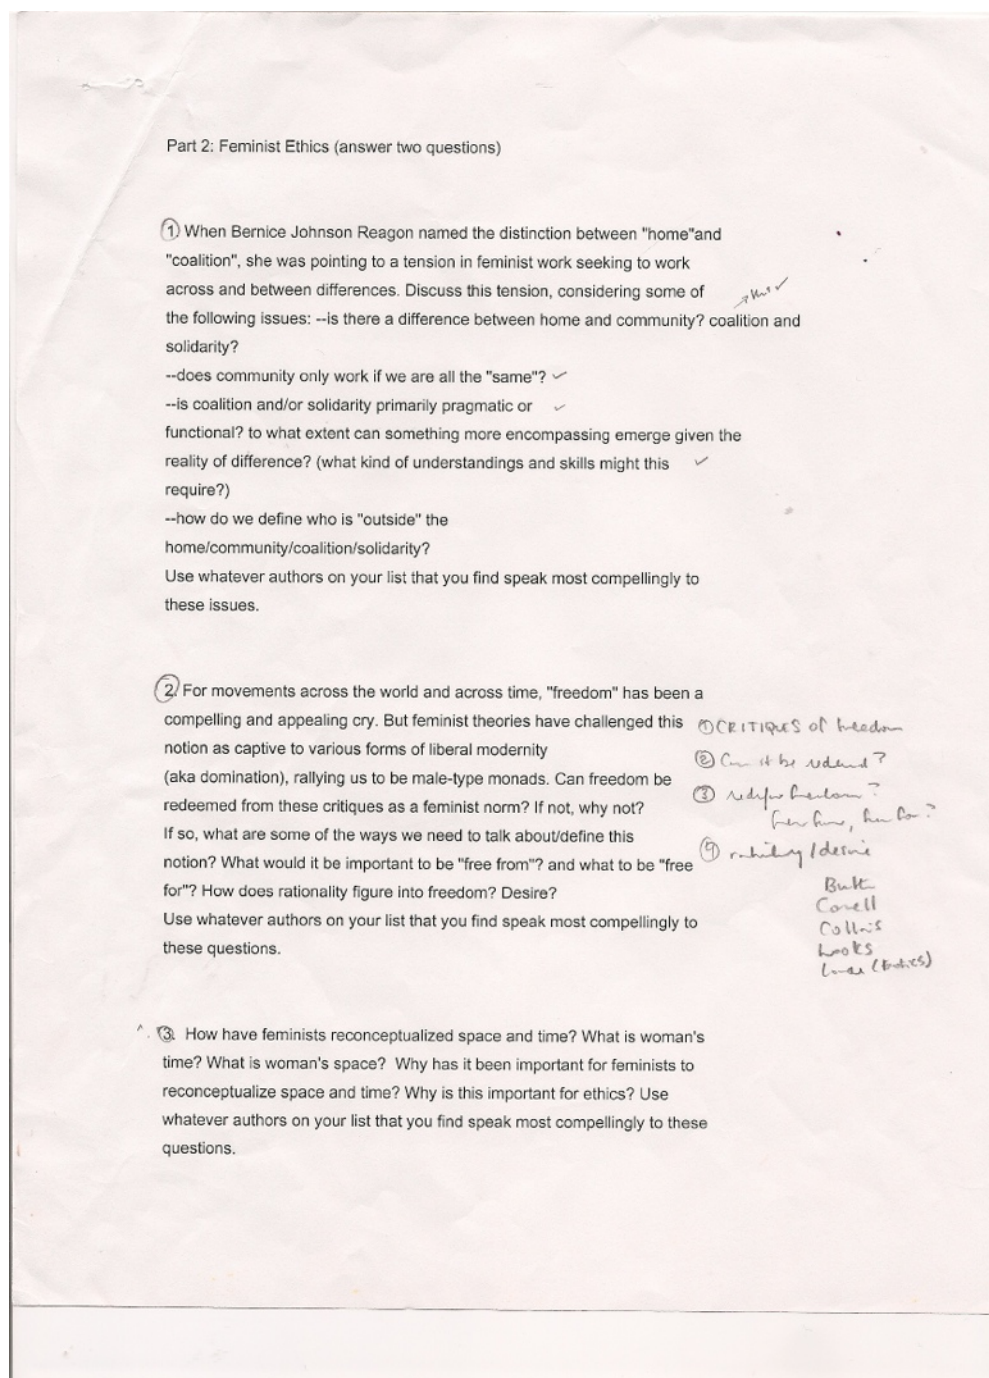 Part 2: Feminist Ethics (answer two questions)
1. When Bernice Johnson Reagon named the distinction between "home"and
"coalition", she was pointing to a tension in feminist work seeking to work
across and between differences. Discuss this tension, considering some of
the following issues: --is there a difference between home and community? coalition and
solidarity?
--does community only work if we are all the "same"? ✓
--is coalition and/or solidarity primarily pragmatic or ✓
functional? to what extent can something more encompassing emerge given the
reality of difference? (what kind of understandings and skills might this ✓
require?)
--how do we define who is "outside" the
home/community/coalition/solidarity?
Use whatever authors on your list that you find speak most compellingly to
these issues.
2. For movements across the world and across time, "freedom" has been a
compelling and appealing cry. But feminist theories have challenged this
notion as captive to various forms of liberal modernity
(aka domination), rallying us to be male-type monads. Can freedom be
redeemed from these critiques as a feminist norm? If not, why not?
If so, what are some of the ways we need to talk about/define this
notion? What would it be important to be "free from"? and what to be "free
for"? How does rationality figure into freedom? Desire?
Use whatever authors on your list that you find speak most compellingly to
these questions.
① CRITIQUES of freedom
② Can it be redeemed?
③ redefine freedom?
free from, free for?
④ rationality/desire
Cornell
Collins
hooks
3. How have feminists reconceptualized space and time? What is woman's
time? What is woman's space? Why has it been important for feminists to
reconceptualize space and time? Why is this important for ethics? Use
whatever authors on your list that you find speak most compellingly to these
questions.